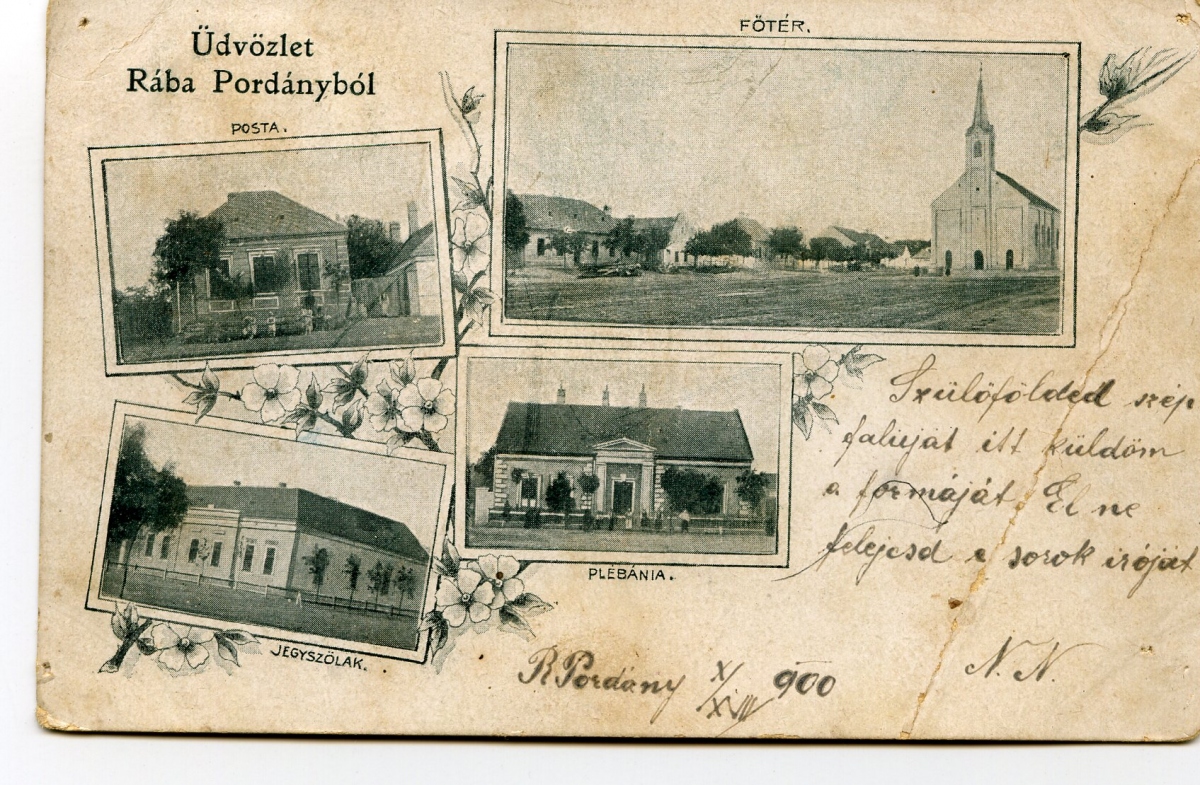 Üdvözlet
Rába Pordányból
FŐTÉR.
POSTA.
PLÉBÁNIA.
JEGYSZŐLAK.
Szülőfölded szép
faluját itt küldöm
a formáját. El ne
felejcsd e sorok iróját
R Pordány X/XVIII 900
N. N.